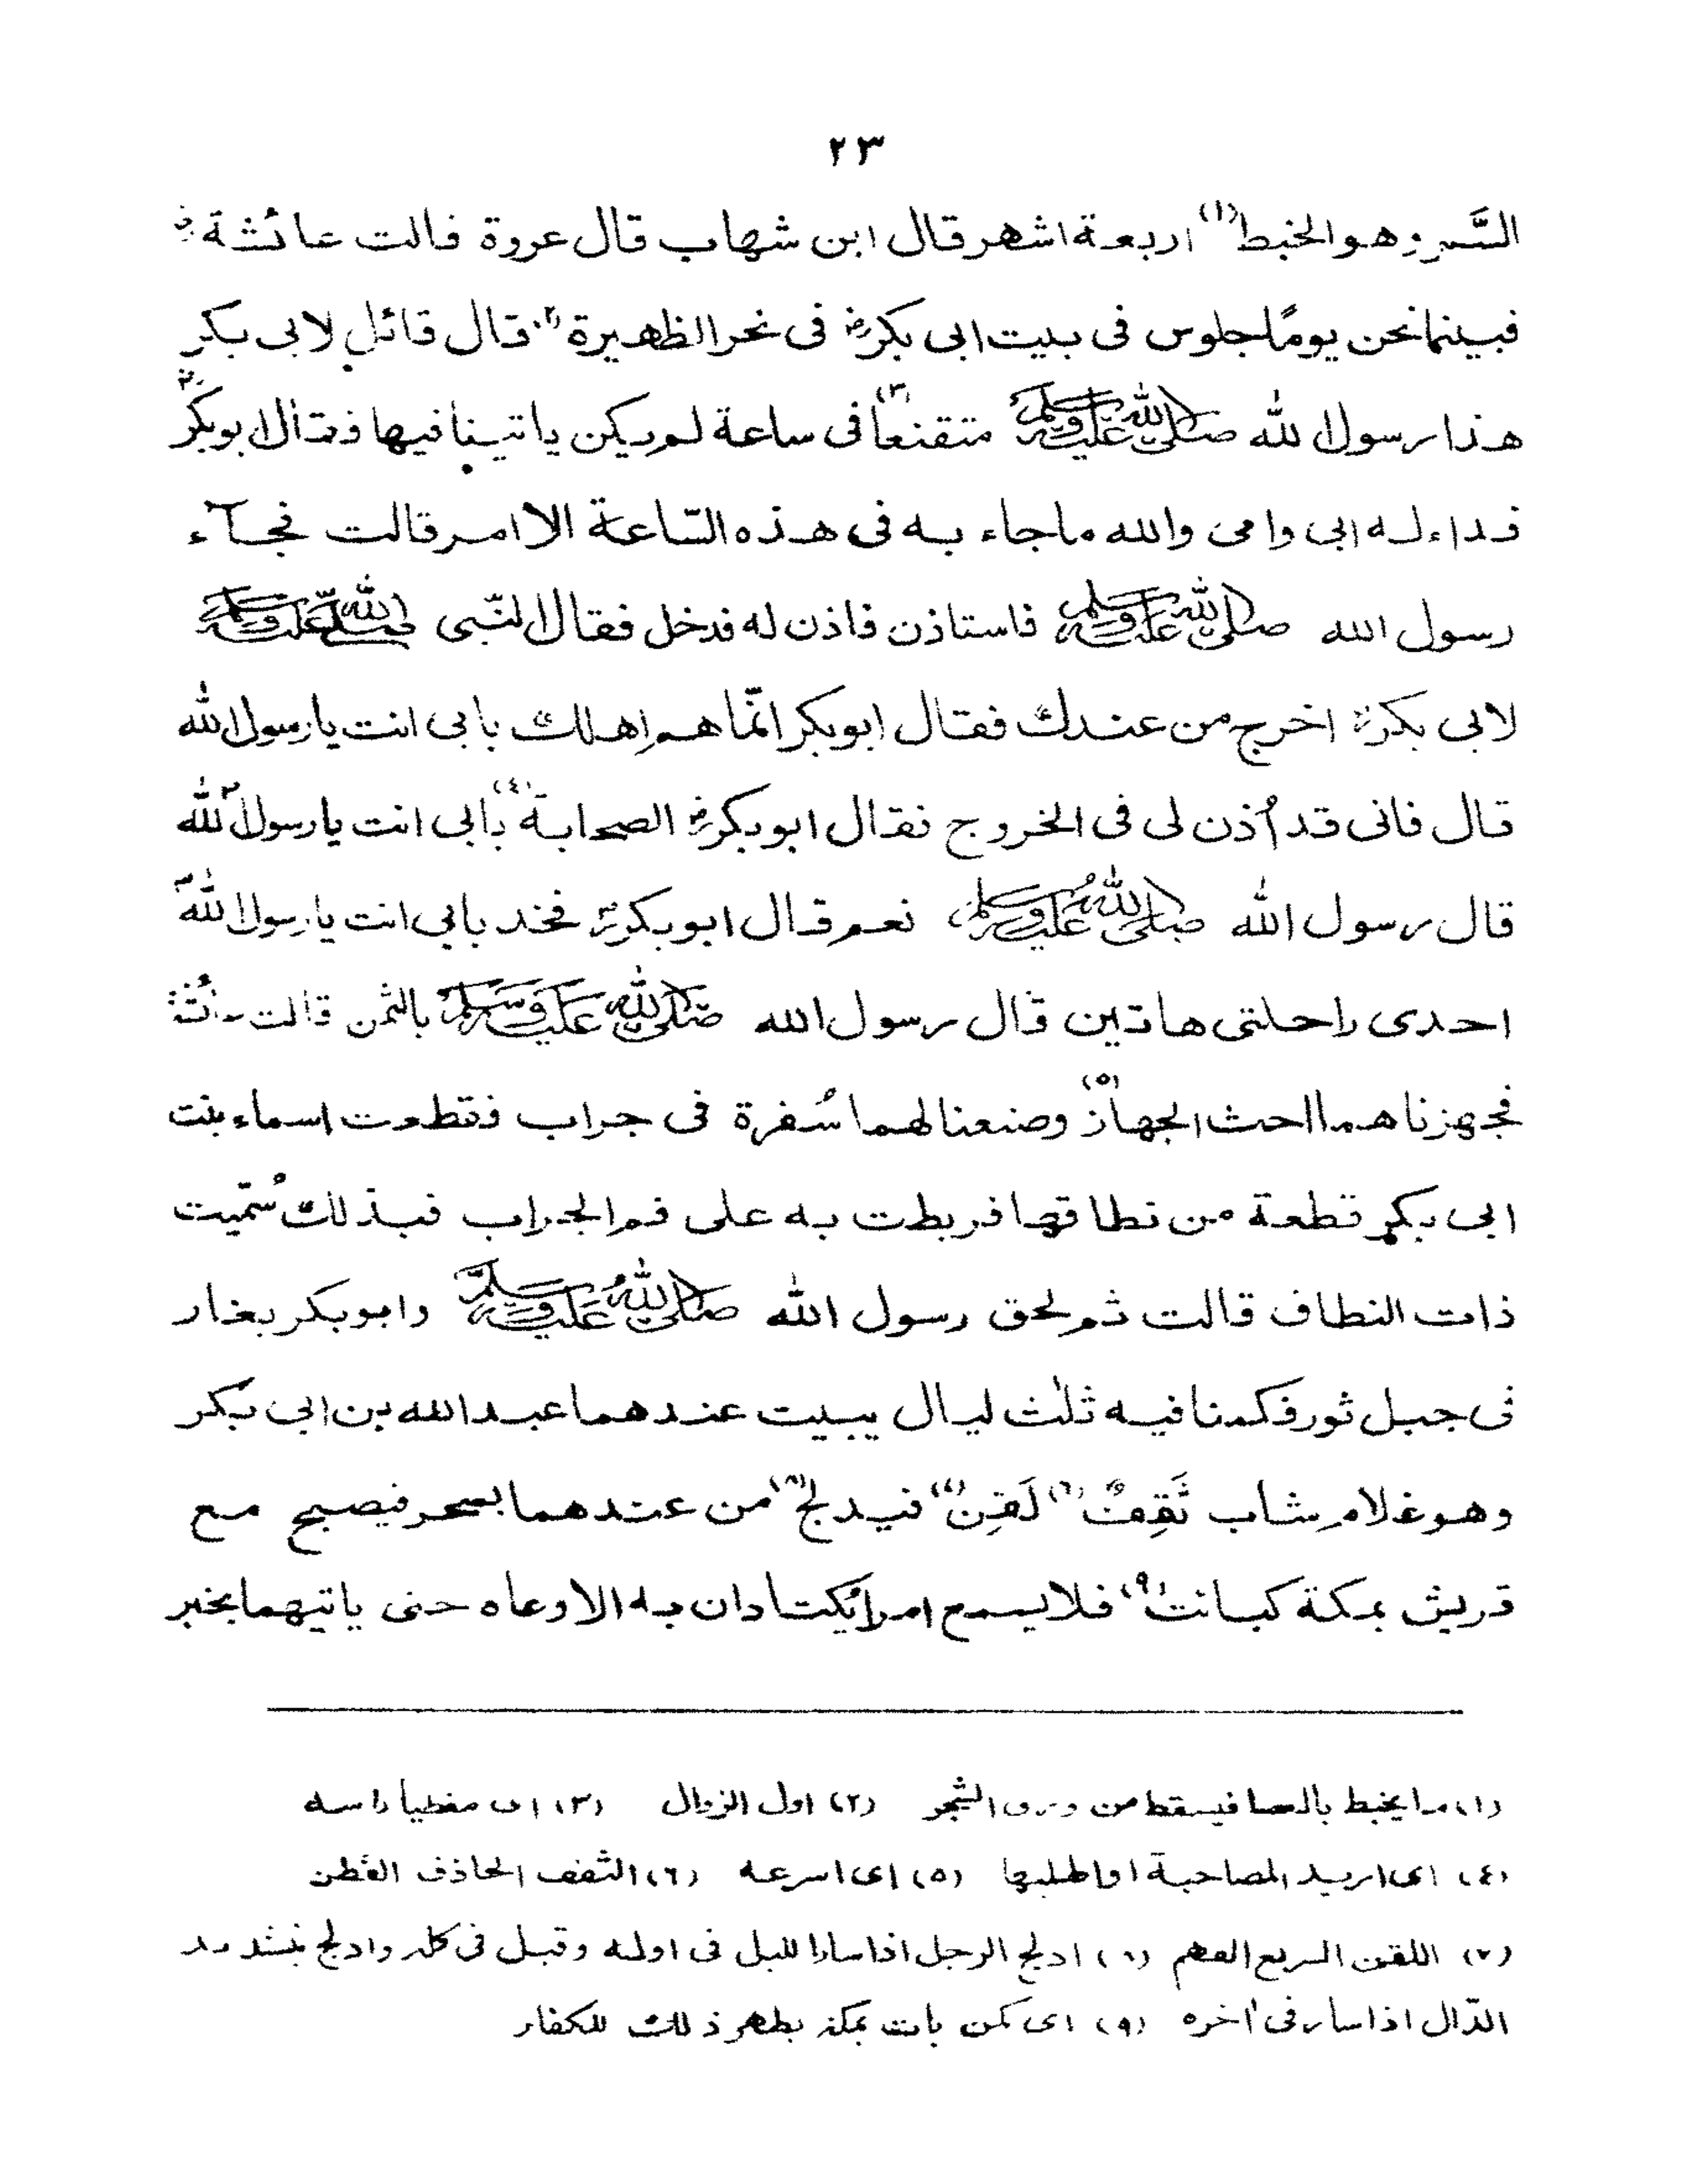 ٢٣
السَّمر وهو الخبط (١) اربعة اشهر قال ابن شهاب قال عروة قالت عائشةؓ
فبينما نحن يومًا جلوس فى بيت ابى بكرؓ فى نحر الظهيرة (٢) قال قائل لابى بكر
هذا رسول الله ﷺ متقنعًا (٣) فى ساعة لم يكن ياتينا فيها فقال ابوبكرؓ
فداء له ابى وامى والله ماجاء به فى هذه السّاعة الا امر قالت فجآء
رسول الله ﷺ فاستاذن فاذن له فدخل فقال النّبى ﷺ
لابى بكرؓ اخرج من عندك فقال ابوبكر انّما هم اهلك بابى انت يا رسول الله
قال فانى قد اُذن لى فى الخروج فقال ابوبكرؓ الصحابة (٤) بابى انت يا رسول الله
قال رسول الله ﷺ نعم قال ابوبكرؓ فخذ بابى انت يا رسول الله
احدى راحلتى هاتين قال رسول الله ﷺ بالثمن قالت عائشة
فجهزناهما احث الجهاز (٥) وصنعنا لهما سُفرة فى جراب فقطعت اسماء بنت
ابى بكر قطعة من نطاقها فربطت به على فم الجراب فبذلك سُمّيت
ذات النطاق قالت ثم لحق رسول الله ﷺ وابوبكر بغار
فى جبل ثور فكمنا فيه ثلٰث ليال يبيت عندهما عبد الله بن ابى بكر
وهو غلام شاب ثَقِفٌ (٦) لَقِنٌ (٧) فيدلج (٨) من عندهما بسحر فيصبح مع
قريش بمكة كبائت (٩) فلا يسمع امرا يكتادان به الا وعاه حتى ياتيهما بخبر
(١) ما يخبط بالعصا فيسقط من ورق الشجر (٢) اول الزوال (٣) اى مغطيا راسه
(٤) اى اريد المصاحبة او اطلبها (٥) اى اسرعه (٦) الثقف الحاذق الفطن
(٧) اللقن السريع الفهم (٨) ادلج الرجل اذا سار الليل فى اوله وقيل فى كله وادلج بتشديد
الدّال اذا سار فى اٰخره (٩) اى كمن بات بمكة يظهر ذلك للكفار